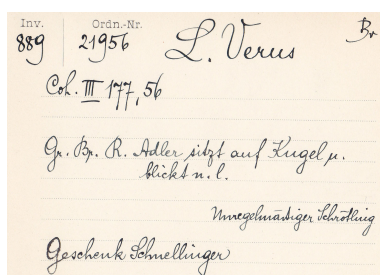 Inv. Ordn.-Nr.
889 21956 L. Verus Br
Coh. III 177, 56
Gr. Br. R. Adler sitzt auf Kugel u.
blickt n. l.
Unregelmäßiger Schrötling
Geschenk Schnellinger